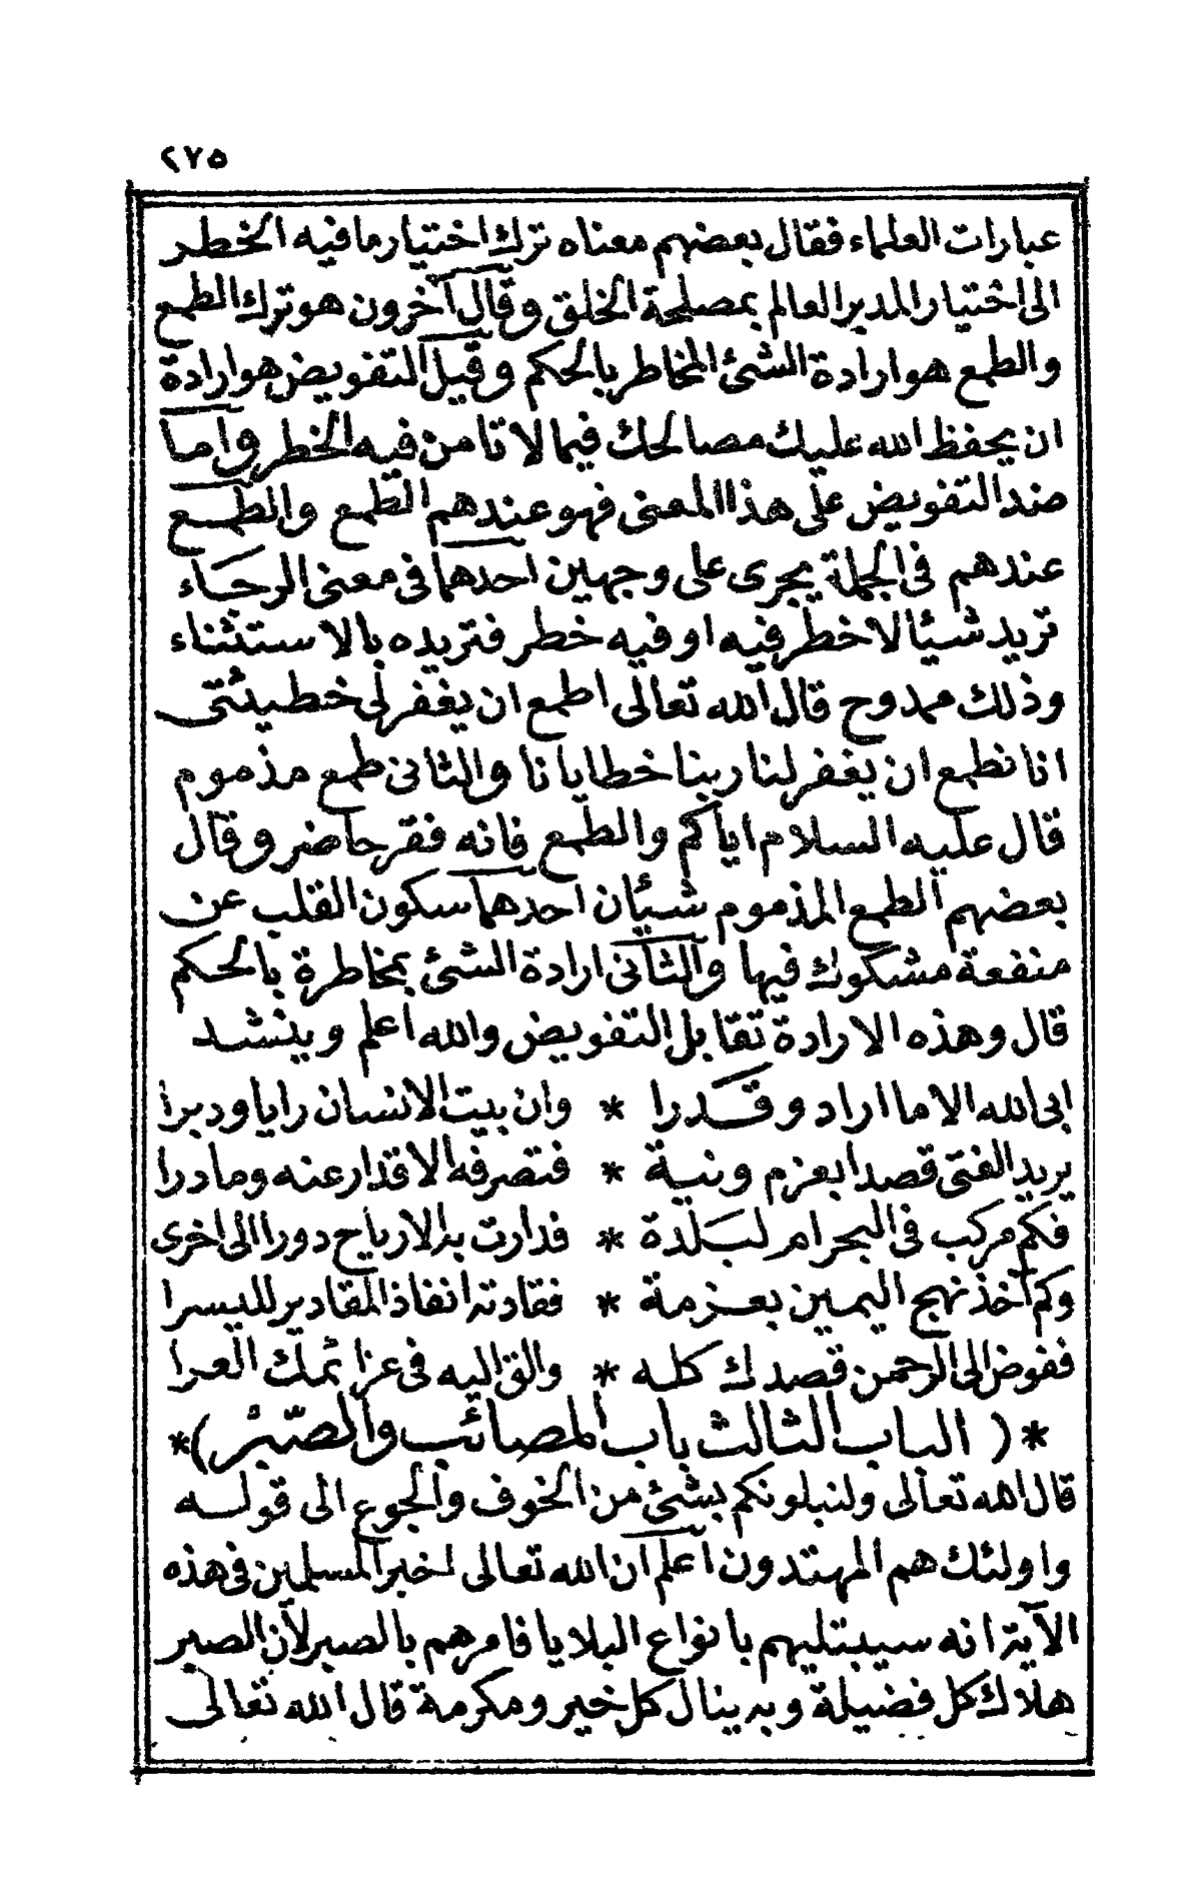 ٢٧٥
عبارات العلماء فقال بعضهم معناه ترك اختيار ما فيه الخطر
الى اختيار المدبر العالم بمصلحة الخلق وقال آخرون هو ترك الطمع
والطمع هو ارادة الشئ المخاطر بالحكم وقيل التفويض هو ارادة
ان يحفظ الله عليك مصالحك فيما لا تامن فيه الخطر واما
ضد التفويض على هذا المعنى فهو عندهم الطمع والطمع
عندهم فى الجملة يجرى على وجهين احدهما فى معنى الرجاء
تريد شيئا لا خطر فيه او فيه خطر فتريده بالاستثناء
وذلك ممدوح قال الله تعالى اطمع ان يغفر لى خطيئتى
انا نطمع ان يغفر لنا ربنا خطايانا والثانى طمع مذموم
قال عليه السلام اياكم والطمع فانه فقر حاضر وقال
بعضهم الطمع المذموم شيئان احدهما سكون القلب عن
منفعة مشكوك فيها والثانى ارادة الشئ بمخاطرة بالحكم
قال وهذه الارادة تقابل التفويض والله اعلم وينشد
ابى الله الا ما اراد وقدرا * وان بيت الانسان رايا ودبرا
يريد الفتى قصدا بعزم ونية * فتصرفه الاقدار عنه وما درا
فكم مركب فى البحر ام لبلدة * فدارت به الارياح دورا الى اخرى
وكم آخذ نهج اليمين بعزمة * فقادته انفاذ المقادير لليسرا
ففوض الى الرحمن قصدك كله * والق اليه فى عزا ئمك العرا
* ( الباب الثالث باب المصائب والصبر ) *
قال الله تعالى ولنبلونكم بشئ من الخوف والجوع الى قوله
واولئك هم المهتدون اعلم ان الله تعالى اخبر المسلمين فى هذه
الآية انه سيبتليهم بانواع البلايا فامرهم بالصبر لأن الصبر
هلاك كل فضيلة وبه ينال كل خير ومكرمة قال الله تعالى